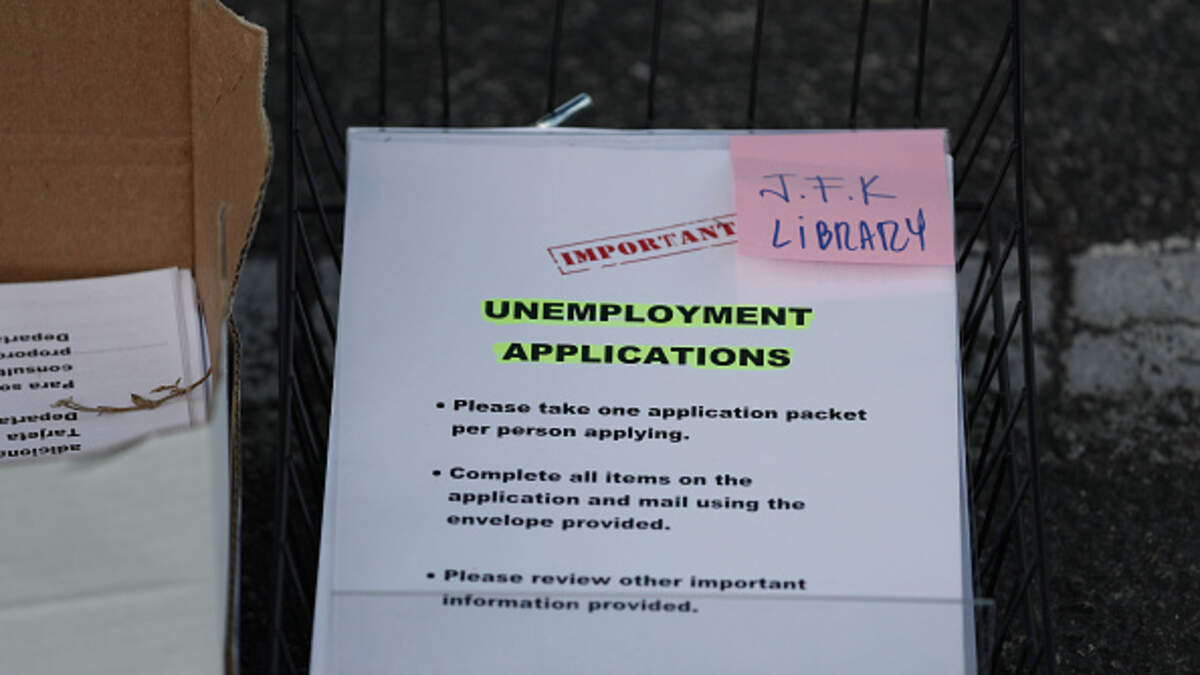 J.F.K
LiBRARY
IMPORTANT
UNEMPLOYMENT
APPLICATIONS
• Please take one application packet
per person applying.
• Complete all items on the
application and mail using the
envelope provided.
• Please review other important
information provided.
adicione
Tarjeta
Departa
Para so
consult
proporc
Departa